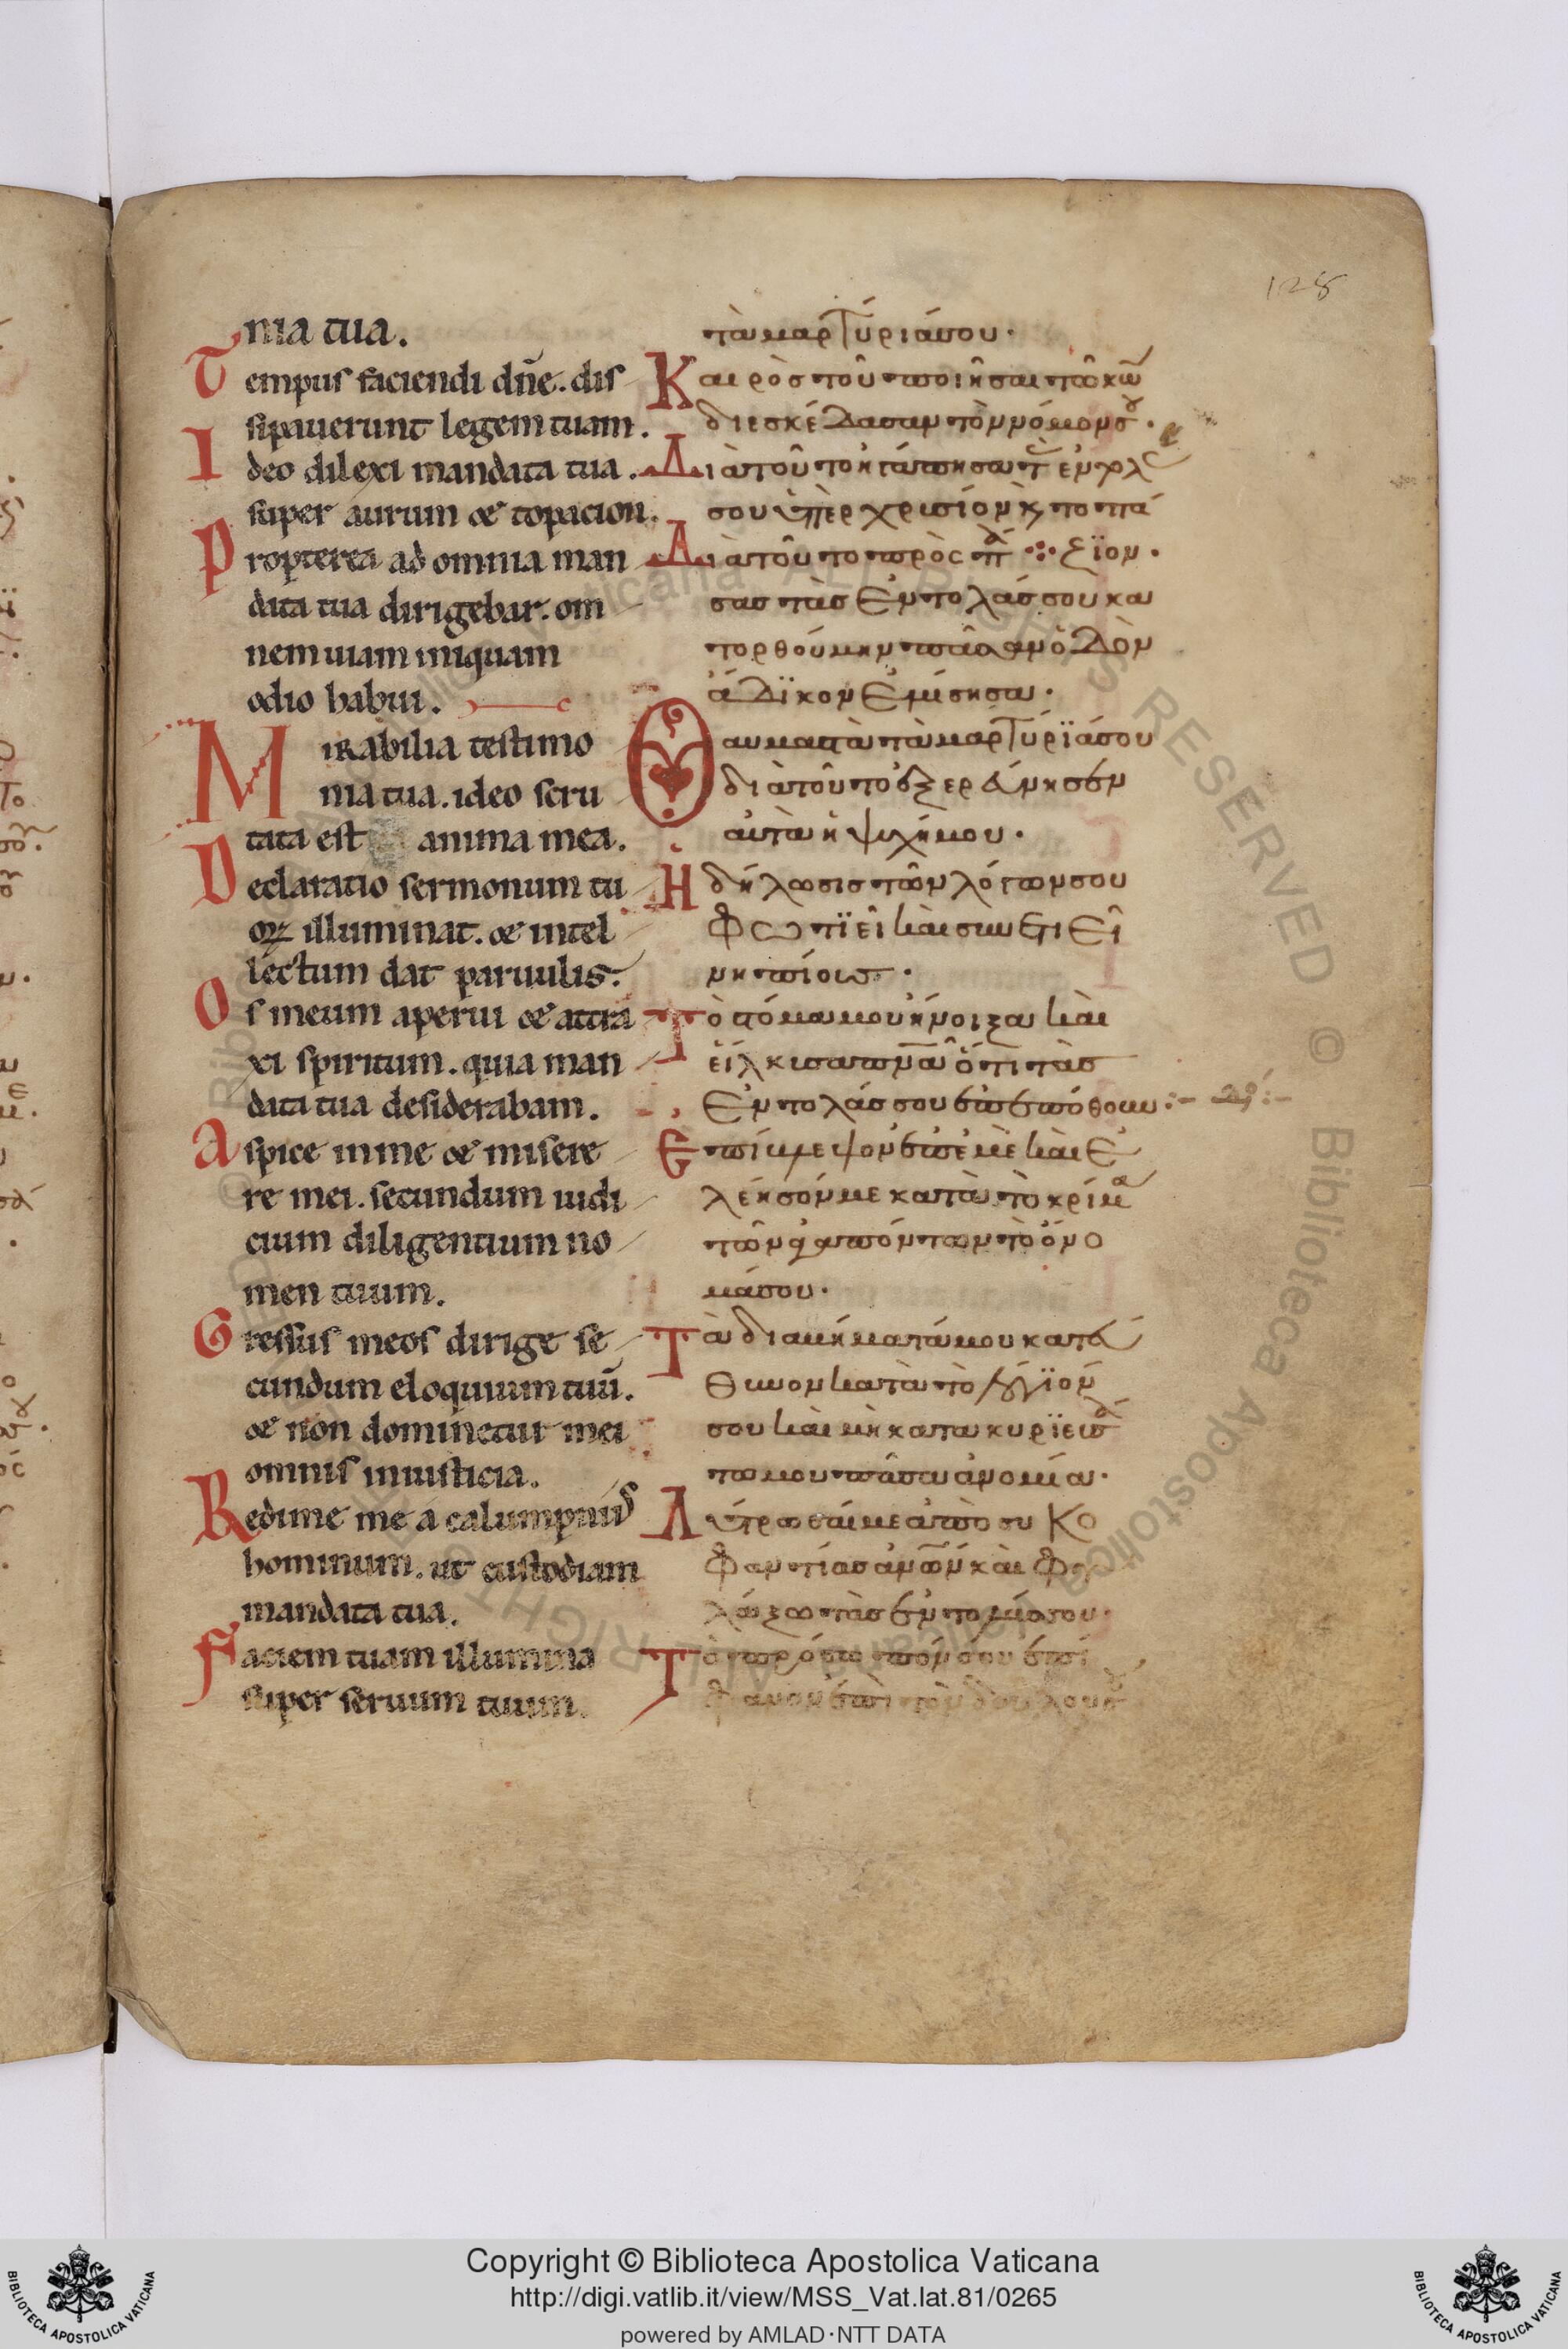 128
nia tua.
Tempus faciendi dñe. dis
sipauerunt legem tuam.
Ideo dilexi mandata tua.
super aurum & topacion.
Propterea ad omnia man
data tua dirigebar. om
nem uiam iniquam
odio habui.
Mirabilia testimo
nia tua. ideo scru
tata est anima mea.
Declaratio sermonum tu
oꝝ illuminat. & intel
lectum dat paruulis.
Os meum aperui & attra
xi spiritum. quia man
data tua desiderabam.
Aspice in me & misere
re mei. secundum iudi
cium diligentium no
men tuum.
Gressus meos dirige se
cundum eloquium tuũ.
& non dominetur mei
omnis iniusticia.
Redime me a calumpniis
hominum. ut custodiam
mandata tua.
Faciem tuam illumina
super seruum tuum.
τὰ μαρτύρια σου·
Καιρὸσ τοῦ ποιῆσαι τῶ κω
διεσκέδασαν τὸν νόμον σου·
Διὰ τοῦτο ἠγάπησα τ ἐντολ
σου ὑπὲρ χρυσίον κ τοπά
Διὰ τοῦτο πρὸς πα ζϊον·
σασ τὰσ ἐντολάσ σου κα
τορθούμην πᾶσαν ὁδὸν
ἄδϊκον ἐμίσησα·
Θαυμαστὰ τὰ μαρτύρϊά σου
διὰ τοῦτο ἐξεράυνησεν
αὐτὰ ἡ ψυχή μου·
Ἡ δήλωσισ τῶν λόγων σου
φωτϊεῖ καὶ συνετιεῖ
νηπίους·
Τὸ στόμα μου ἤνοιξα καὶ
εἵλκυσα πνα ὅτι τὰσ
ἐντολάσ σου ἐπεπόθουν:-
Ἐπίβλεψον ἐπ ἐμὲ καὶ ἐ
λέησόν με κατὰ τὸ κρίμα
τῶν ἀγαπόντων τὸ ὄνο
μά σου·
Τὰ διαβήματά μου κατέ
θυνον κατὰ τὸ λόγϊόν
σου καὶ μὴ κατακυρϊευσά
τω μου πᾶσα ἀνομία·
Λύτρωσαί με ἀπὸ συκο
φαντίασ ἀνων καὶ φυ
λάξω τὰσ ἐντολάσ σου·
Τὸ πρόσωπόν σου ἐπί
φανον ἐπὶ τὸν δοῦλον σου
Copyright © Biblioteca Apostolica Vaticana
http://digi.vatlib.it/view/MSS_Vat.lat.81/0265
powered by AMLAD·NTT DATA
BIBLIOTECA APOSTOLICA VATICANA
BIBLIOTECA APOSTOLICA VATICANA